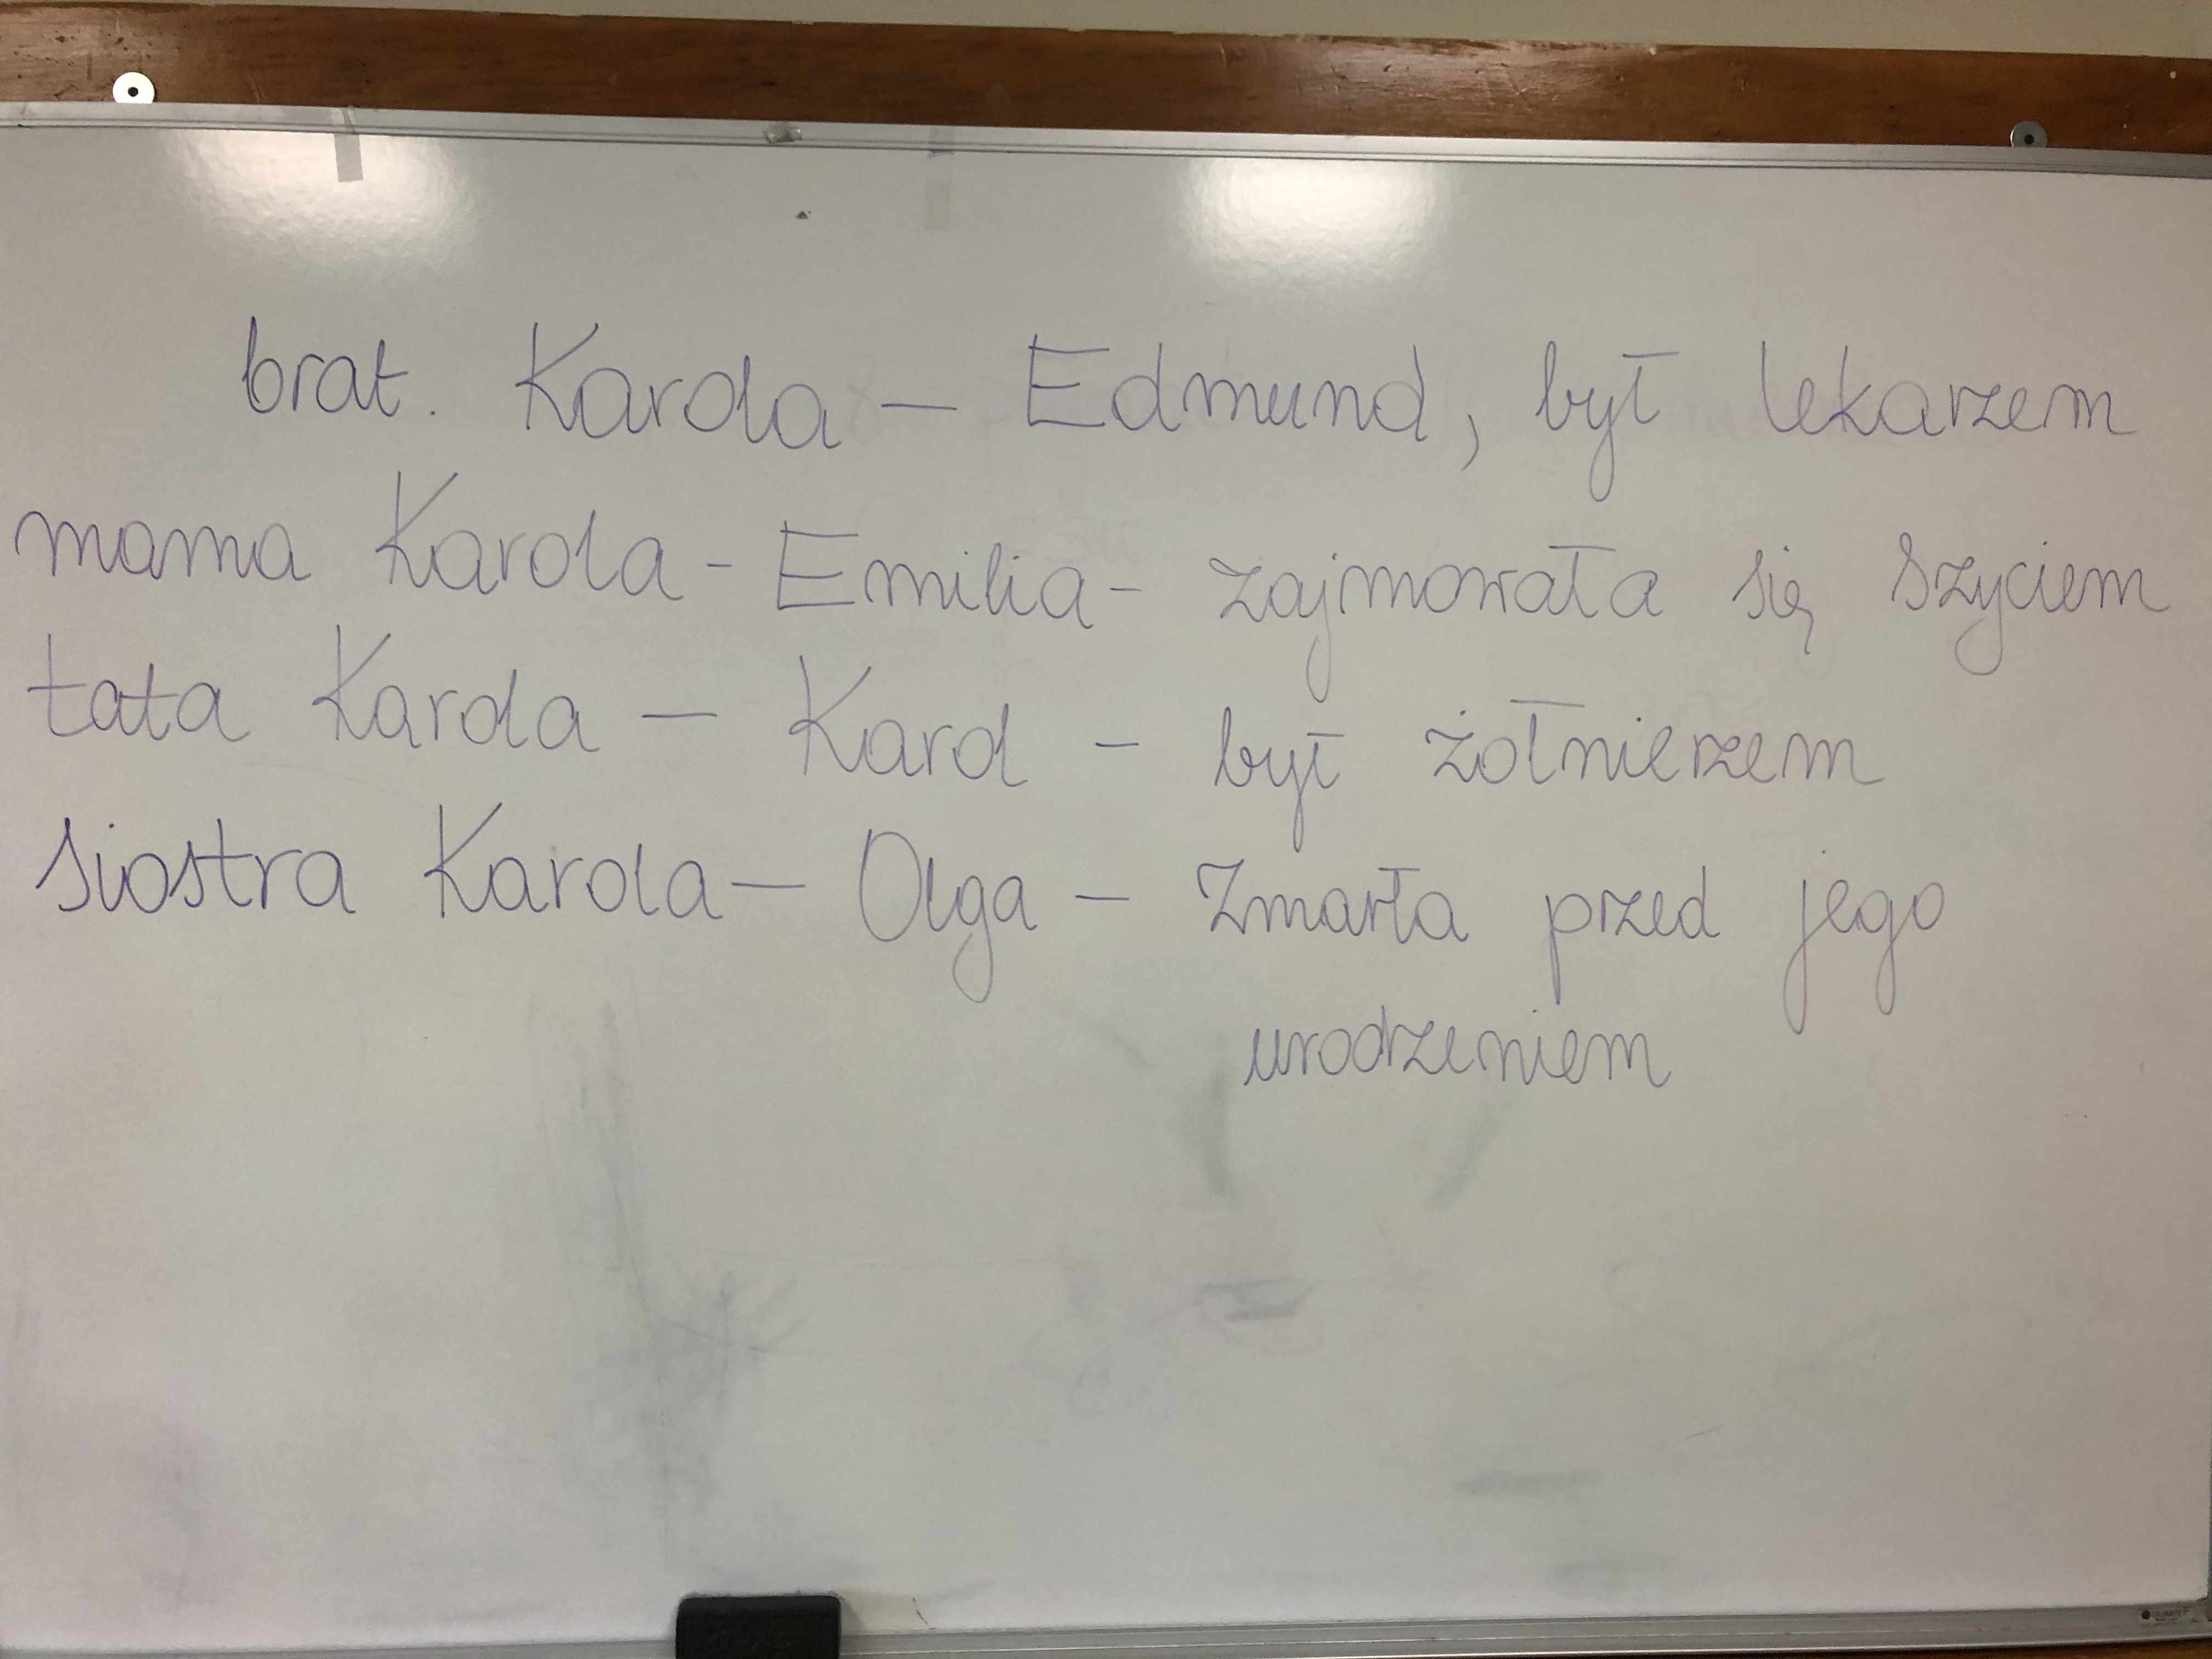 brat. Karola — Edmund, był lekarzem
mama Karola - Emilia - zajmowała się szyciem
tata Karola — Karol - był żołnierzem
siostra Karola — Olga — Zmarła przed jego
urodzeniem